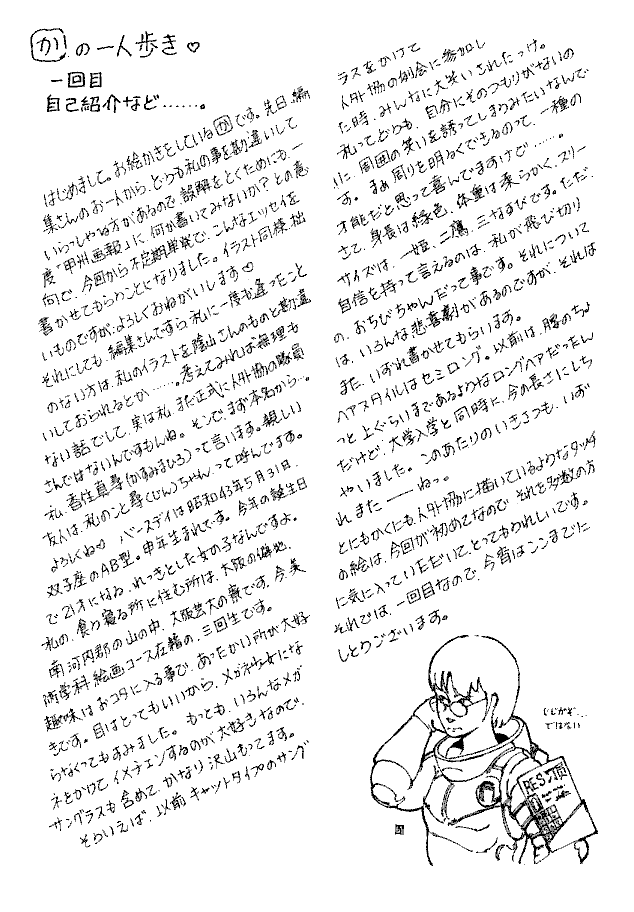 かの一人歩き♡
一回目
自己紹介など……。
はじめまして。お絵かきをしているかです。先日、編
集さんのお一人から、どうも私の事を勘違いして
いらっしゃる方があるので、誤解をとくためにも、一
度“甲州画報”に、何か書いてみないか?との意
向で、今回から不定期単発で、こんなエッセイを
書かせてもらうことになりました。イラスト同様、拙
いものですが、よろしくおねがいします♡
それにしても、編集さんですら、私に一度も逢ったこと
のない方は、私のイラストを陰山さんのものと勘違
いしておられるとか……。考えてみれば無理も
ない話でして、実は私、まだ正式に人外協の隊員
さんではないんですもんね。そこで、まず本名から…。
私、香性真尋(かすみまひろ)って言います。親しい
友人は、私のこと尋(じん)ちゃんって呼んでます。
よろしくね♡ バースデイは昭和43年5月31日、
双子座のAB型。申年生まれです。今年の誕生日
で21才になる、れっきとした女の子なんですよ。
私の、食う寝る所に住む所は、大阪の僻地、
南河内郡の山の中、大阪芸大の寮です。今、美
術学科絵画コース在籍の、三回生です。
趣味はおコタに入る事で、あったかい所が大好
きです。目はとってもいいから、メガネ少女にな
らなくってもすみました。もっとも、いろんなメガ
ネをかけて、イメチェンするのが大好きなので、
サングラスも含めて、かなり沢山もってます。
そういえば、以前キャットタイプのサング
ラスをかけて
人外協の例会に参加し
た時、みんなに大笑いされたっけ。
私ってどうも、自分にそのつもりがないの
に、周囲の笑いを誘ってしまうみたいなんで
す。まぁ周りを明るくできるのって、一種の
才能だと思って喜んでますけど……。
さて、身長は緑色、体重は柔らかく、スリー
サイズは、一姫、二鷹、三なすびです。ただ、
自信を持って言えるのは、私が飛び切り
の、おちびちゃんだって事です。それについて
は、いろんな悲喜劇があるのですが、それは
また、いずれ書かせてもらいます。
ヘアスタイルはセミロング。以前は、腰のちょ
っと上ぐらいまであるようなロングヘアだったん
だけど、大学入学と同時に、今の長さにしち
ゃいました。このあたりのいきさつも、いず
れまた――ねっ。
とにもかくにも、人外協に描いているようなタッチ
の絵は、今回が初めてなので、それを多数の方
に気に入っていただいて、とってもうれしいです。
それでは、一回目なので、今宵はここまでに
しとうございます。
ではない